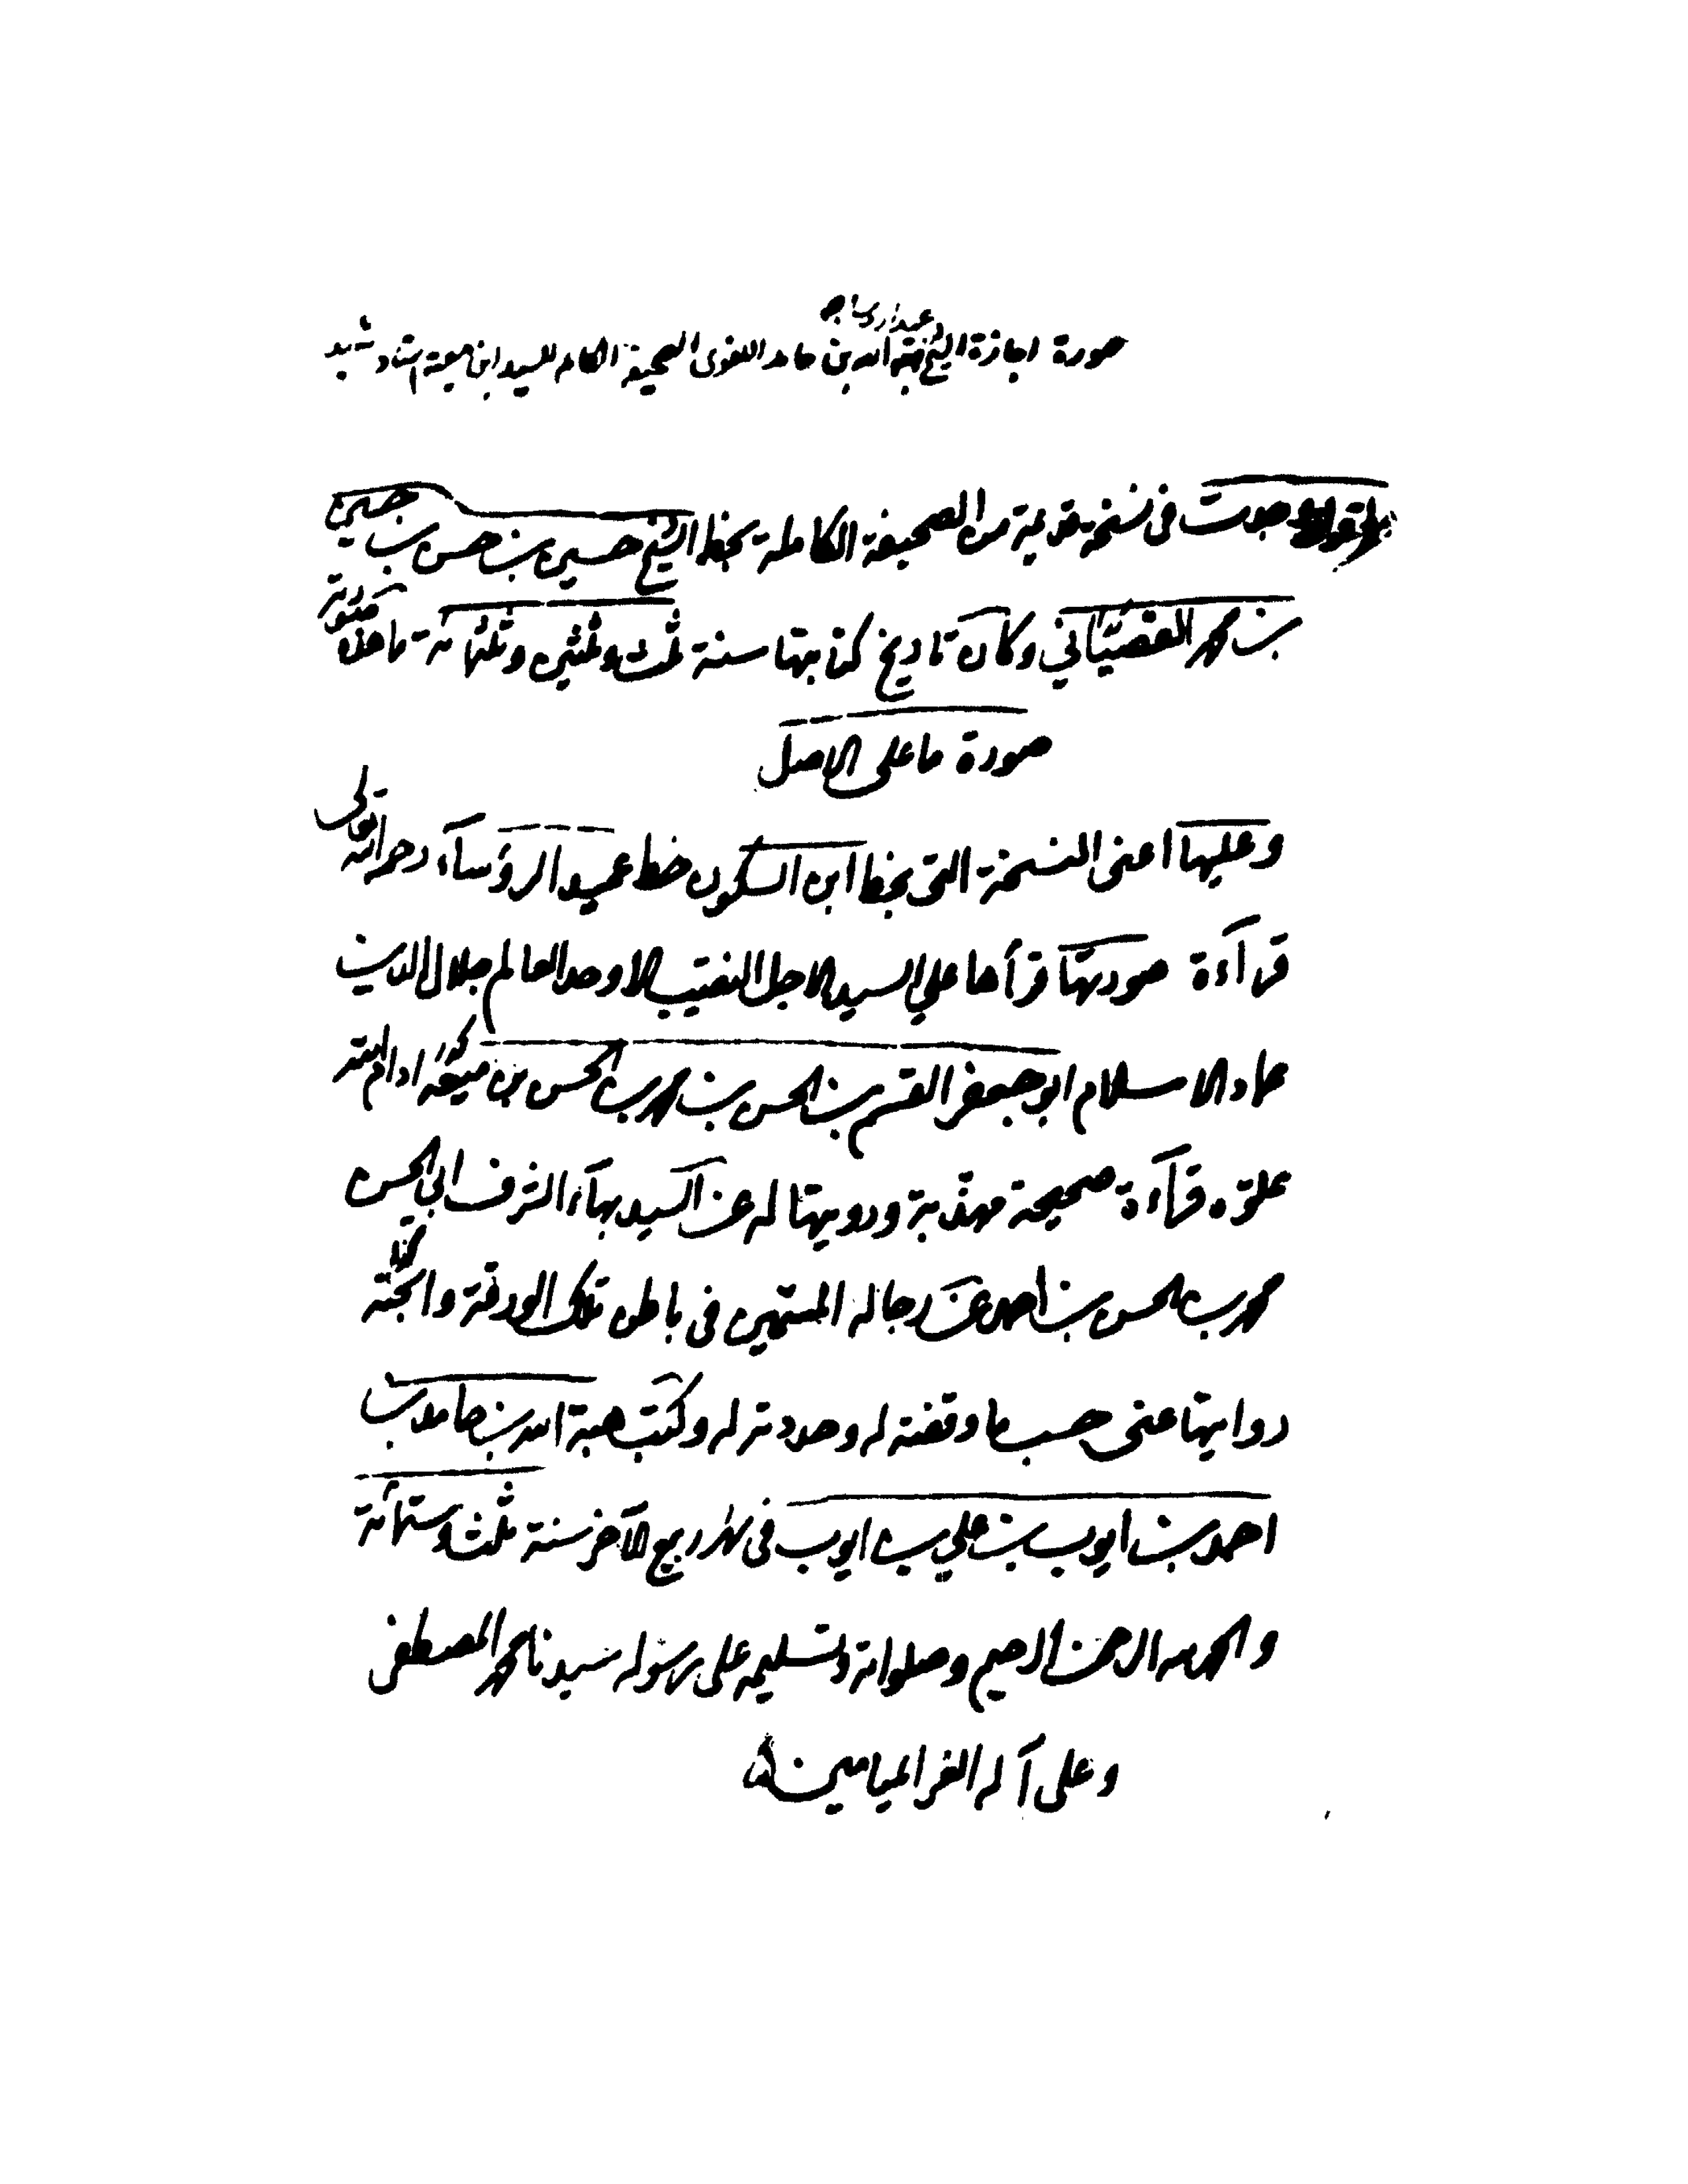 عميد الرؤساء
صورة اجازة الشيخ هبة الله بن حامد اللغوى الصحيفة الكاملة للسيد ابن معية استاد شهيد
وجدت فى نسخة قديمة من الصحيفة الكاملة بخط الشيخ حسين بن حسن بن حسين
بن محمد القصبّانى وكان تاريخ كتابتها سنة ثلث وثلثين وثلثمائة ما هذه صورته
صورة ما على الاصل
وعليها اعنى النسخة التى بخط ابن السكون خط عميد الرؤساء رحمه الله تعالى
قرآءة صورتها قرأها على السيد الاجل النقيب الاوحد العالم جلال الدين
عماد الاسلام ابو جعفر القسم بن الحسن بن محمد بن الحسن بن معية ادام الله
علوّه قرآءة صحيحة مهذّبة ورويتها له عن السيد بهاء الشرف ابى الحسن
محمد بن الحسن بن احمد عن رجاله المسمّين فى باطن تلك الورقة وابحته
روايتها عنى حسب ما وقفته له وحددته له وكتب هبة الله بن حامد بن
احمد بن ايوب بن على بن ايوب فى شهر ربيع الآخر سنة ثلث وستمائة
والحمد لله الرحمن الرحيم وصلواته وتسليمه على رسوله سيدنا محمد المصطفى
وعلى آله الغر الميامين